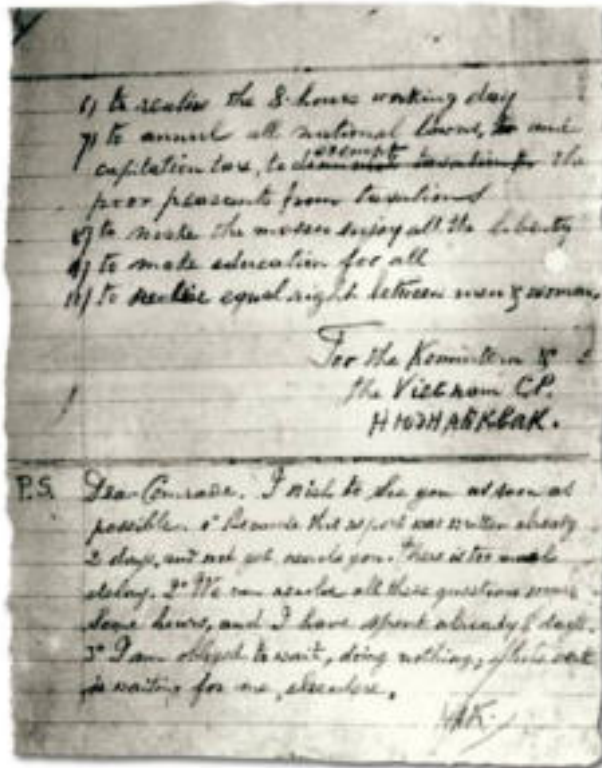 6) to realise the 8-hours working day
7) to annul all national loans, and
capitation tax, to exempt the
poor peasants from taxations
8) to make the masses enjoy all the liberty
9) to make education for all
10) to realise equal right between man & woman.
For the Komintern &
the Vietnam C.P.
P.S. Dear Comrade. I wish to see you as soon as
possible. 1° Because this report was written already
2 days, and not yet you. There is too much
delay. 2° We can resolve all these questions
some hours, and I have spent already days.
3° I am obliged to wait, doing nothing, while work
is waiting for me, elsewhere.